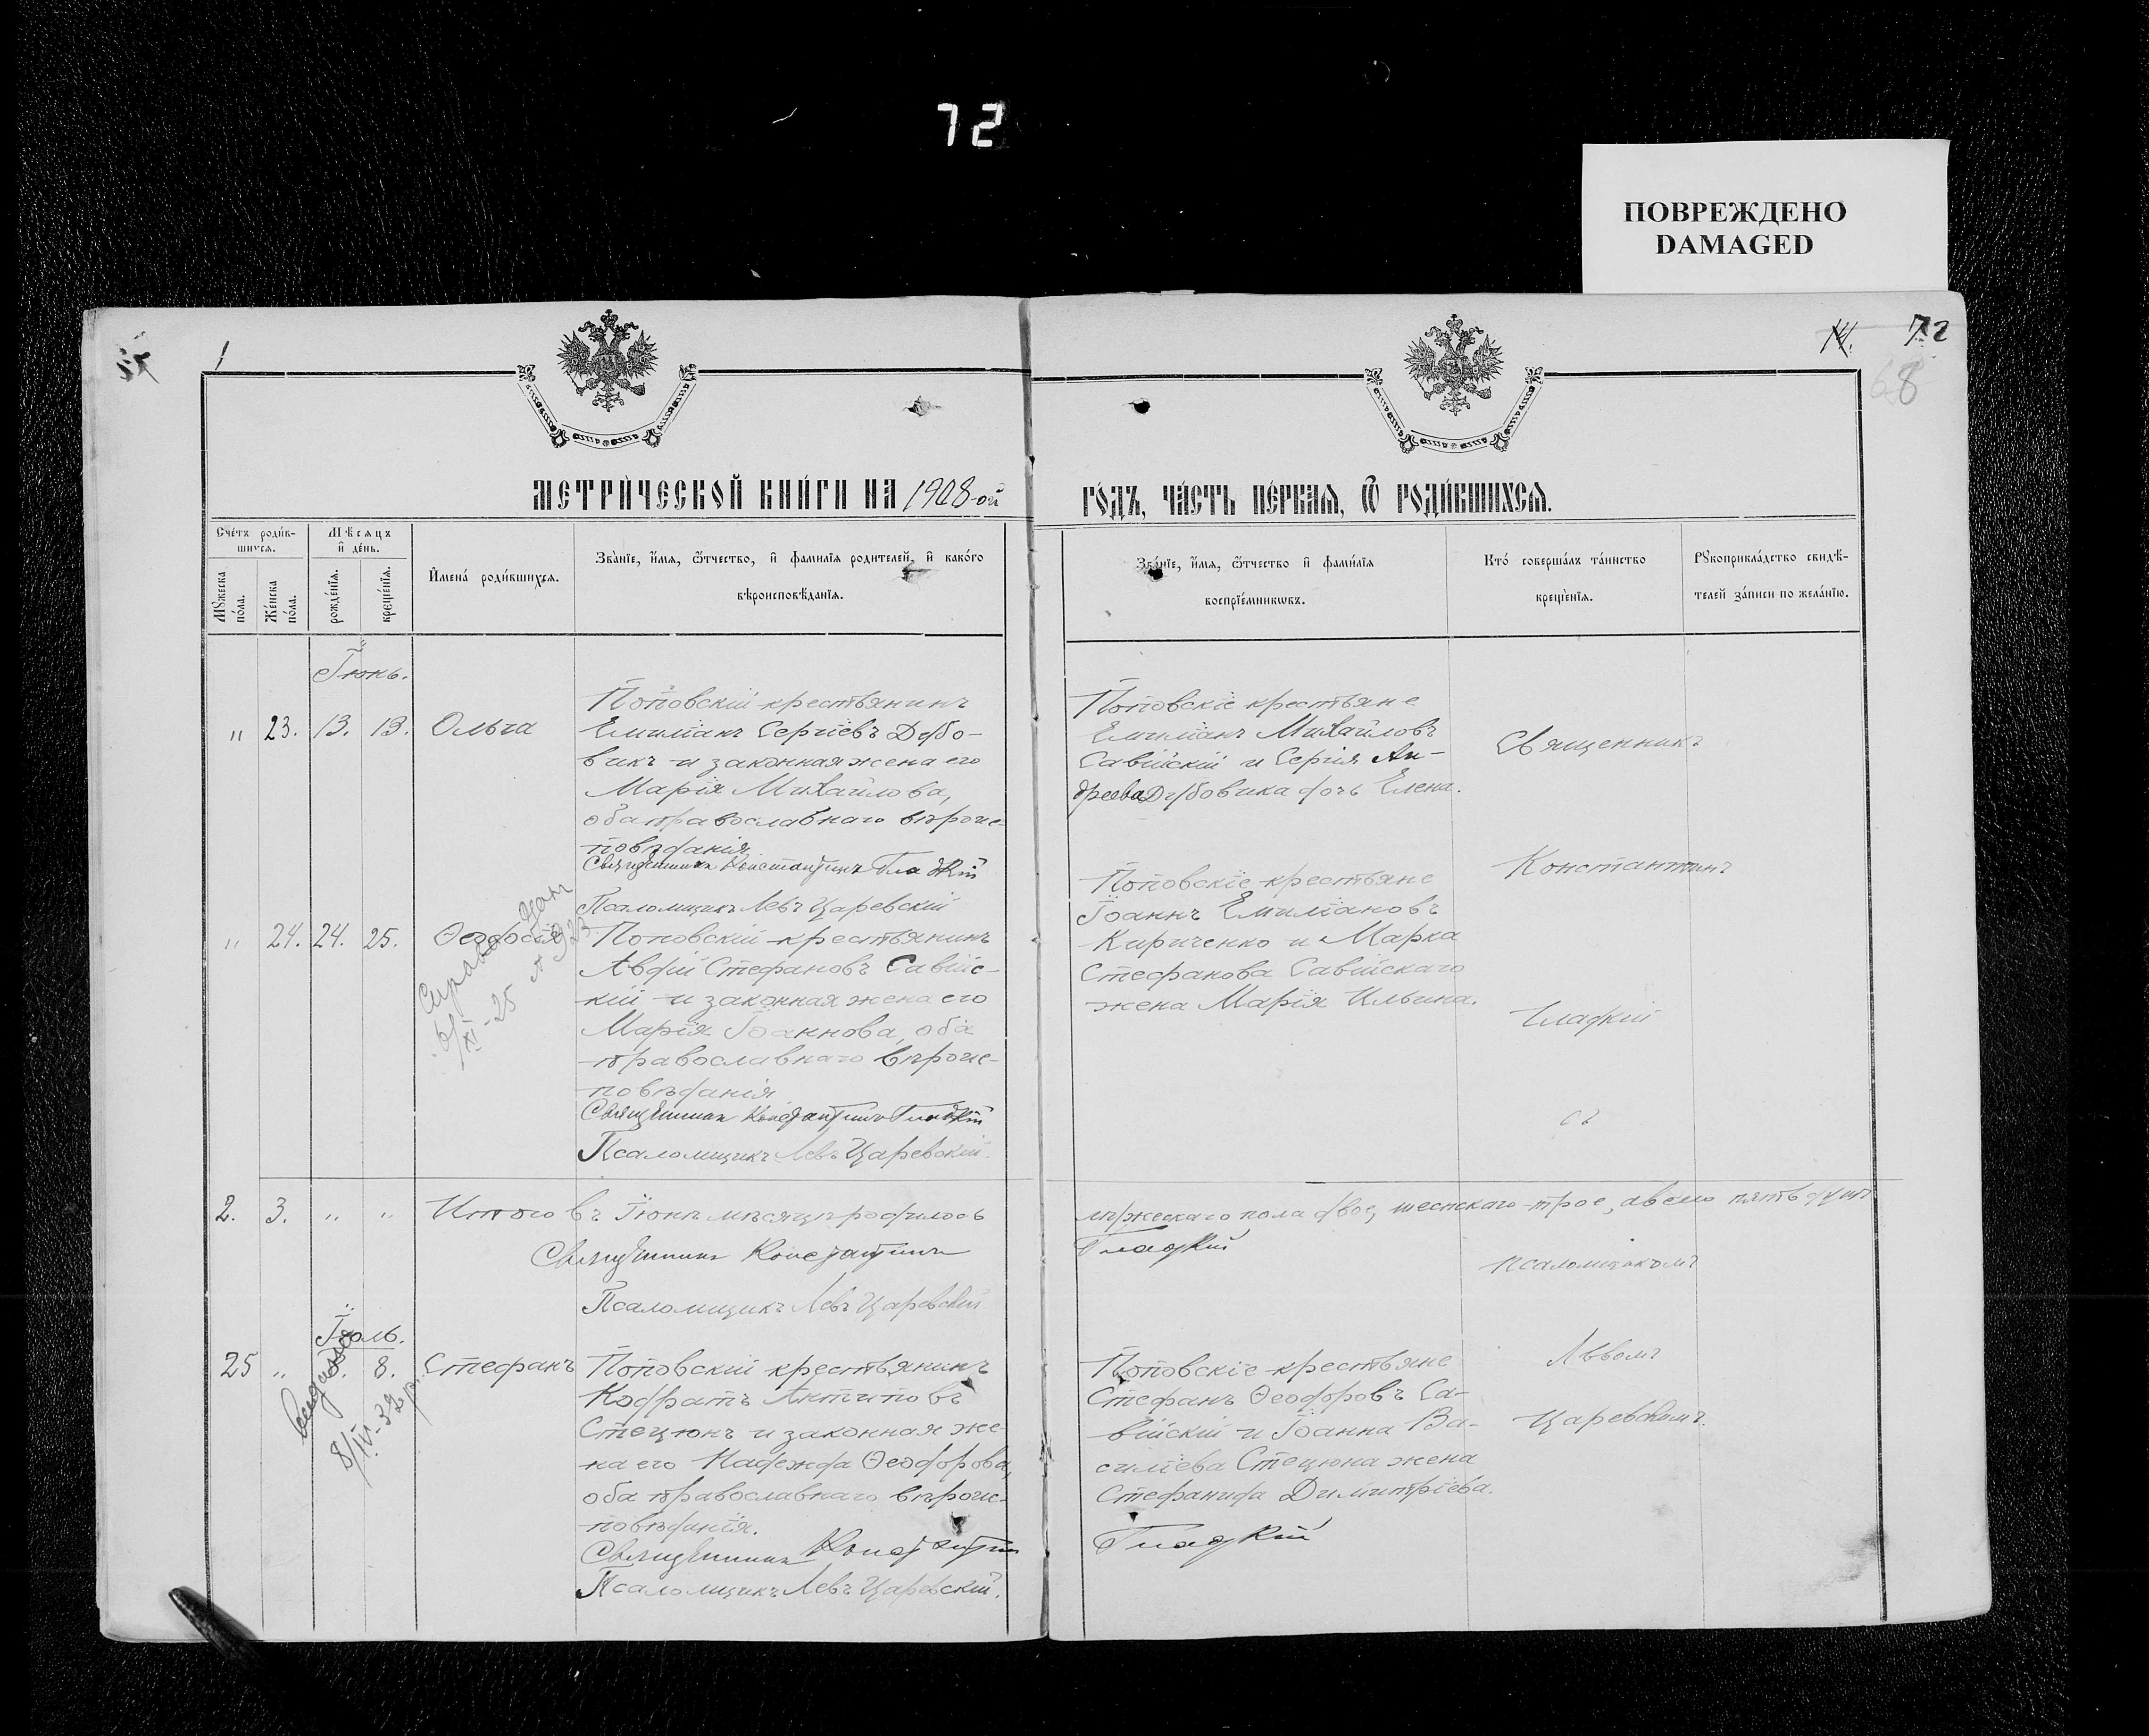 72
ПОВРЕЖДЕНО
DAMAGED
72
68
МЕТРИ́ЧЕСКОЙ КНИ́ГИ НА 1908-ой
ГО́ДЪ, ЧА́СТЬ ПЕ́РВАѦ, Ѿ РОДИ́ВШИХСѦ.
Сче́тъ роди́в-
шихсѧ.
Мѣсѧцъ
и҆ де́нь.
Мꙋжеска
по́ла.
Же́нска
по́ла.
рожде́нїѧ.
креще́нїѧ.
И҆мена̀ роди́вшихсѧ.
Зва́нїе, и҆́мѧ, ѻ҆́тчество, и҆ фамилїѧ родителей, и҆ како́го
вѣроисповѣ́данїѧ.
Зва́нїе, и҆́мѧ, ѻ҆́тчество и҆ фами́лїѧ
воспрїе́мникѡвъ.
Кто̀ соверша́лъ та́инство
креще́нїѧ.
Рꙋкоприкла́дство свидѣ́-
телей за́писи по жела́нїю.
Іюнь.
" 23. 13. 13. Ольга
Поповскій крестьянинъ
Емиліанъ Сергіевъ Дубо-
викъ и законная жена его
Марія Михайлова,
оба православнаго вѣроис-
повѣданія
Священникъ Константинъ Гладкій
Псаломщикъ Левъ Царевскій
Поповскіе крестьяне
Емиліанъ Михайловъ
Савійскій и Сергія Ан-
дреева Дубовика дочь Елена.
Священникъ
Константинъ
Гладкій
съ
псаломщикомъ
Львомъ
Царевскимъ.
" 24. 24. 25. Ѳеодосія
Поповскій крестьянинъ
Авфій Стефановъ Савійс-
кій и законная жена его
Марія Іоаннова, оба
православнаго вѣроис-
повѣданія
Священникъ Константинъ Гладкій
Псаломщикъ Левъ Царевскій.
Поповскіе крестьяне
Іоаннъ Емиліановъ
Кириченко и Марка
Стефанова Савійскаго
жена Марія Ильина.
2. 3. " " Итого въ Іюнѣ мѣсяцѣ родилось мужескаго пола двое, женскаго трое, а всего пять душъ
Священникъ Константинъ Гладкій
Псаломщикъ Левъ Царевскій
Іюль.
25 " 8. Стефанъ
8/IV-32 р.
Поповскій крестьянинъ
Кодратъ Антиповъ
Стецюнъ и законная же-
на его Надежда Ѳеодорова,
оба православнаго вѣроис-
повѣданія.
Священникъ Константинъ Гладкій
Псаломщикъ Левъ Царевскій.
Поповскіе крестьяне
Стефанъ Ѳеодоровъ Са-
війскій и Іоанна Ва-
силіева Стецюна жена
Стефанида Димитріева.